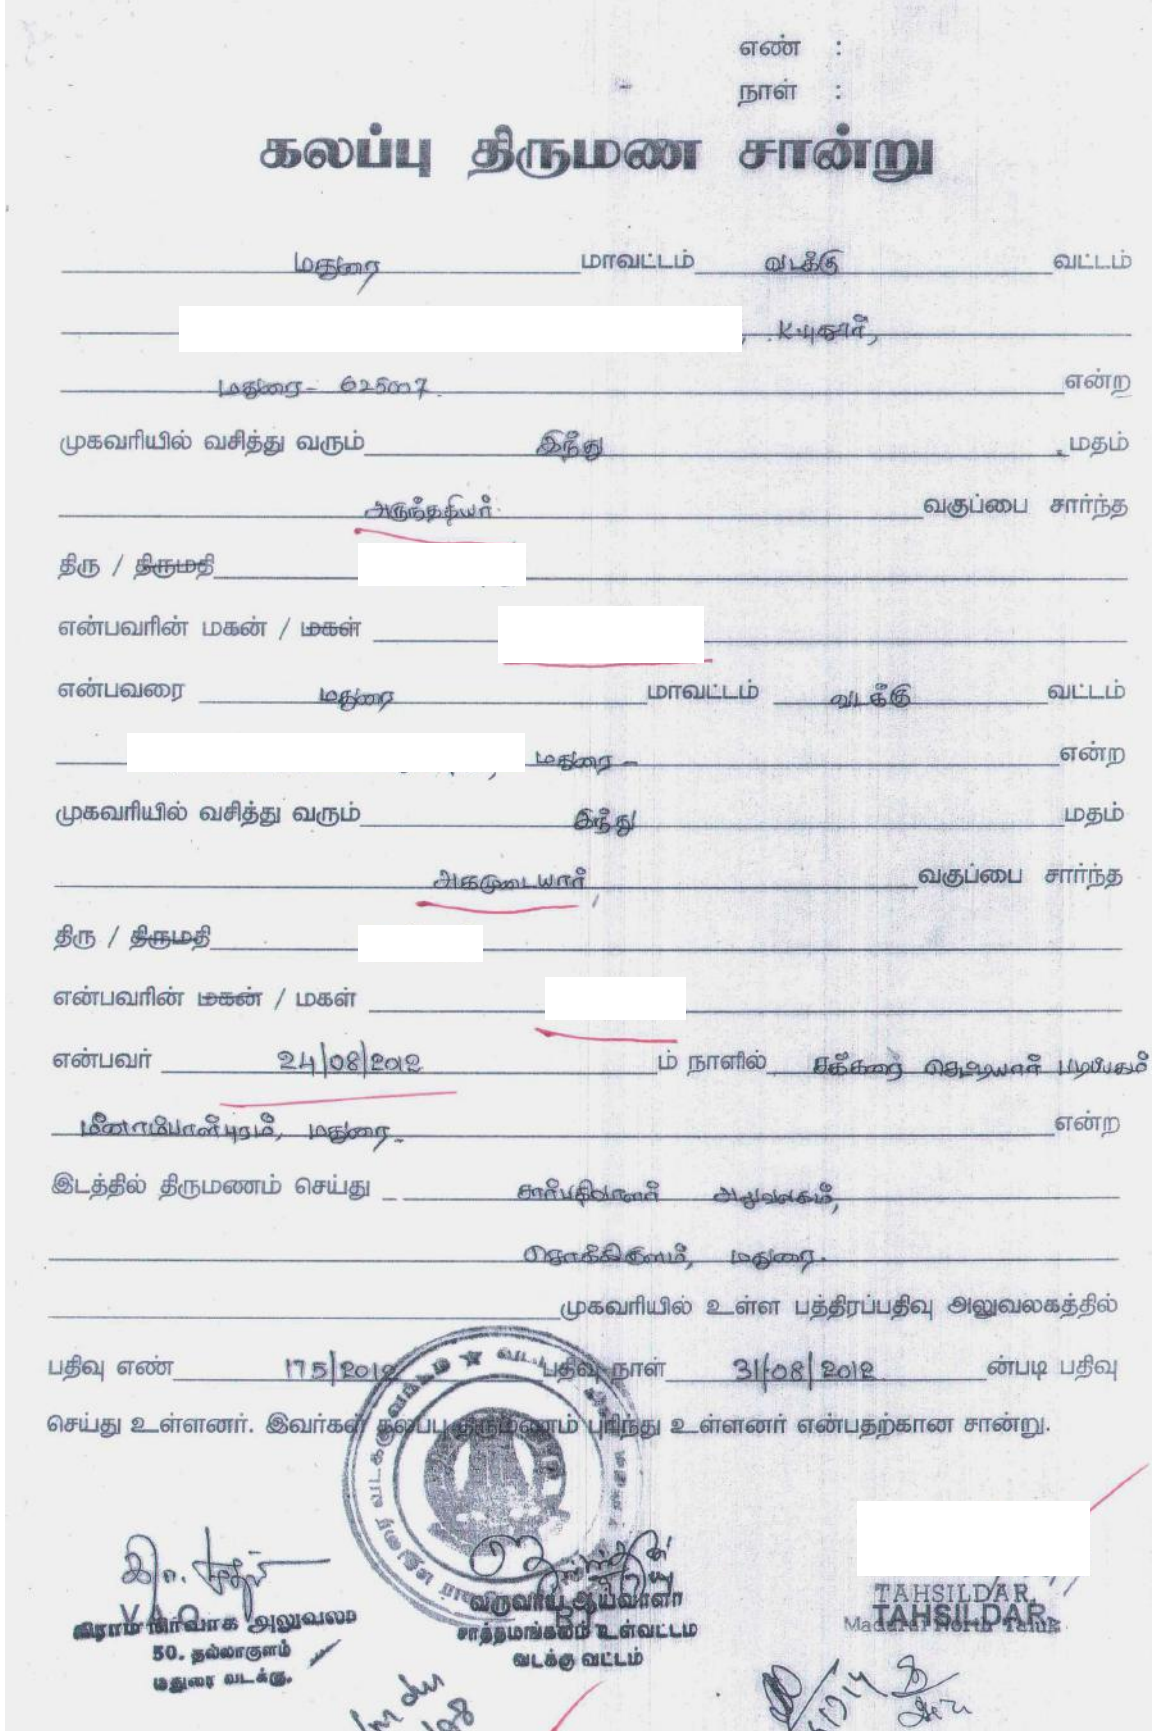 எண் :
நாள் :
கலப்பு திருமண சான்று
மதுரை மாவட்டம் வடக்கு வட்டம்
K.புதூர்,
மதுரை - 625007. என்ற
முகவரியில் வசித்து வரும் இந்து மதம்
அருந்ததியர் வகுப்பை சார்ந்த
திரு / திருமதி
என்பவரின் மகன் / மகள்
என்பவரை மதுரை மாவட்டம் வடக்கு வட்டம்
மதுரை - என்ற
முகவரியில் வசித்து வரும் இந்து மதம்
அகமுடையார் வகுப்பை சார்ந்த
திரு / திருமதி
என்பவரின் மகன் / மகள்
என்பவர் 24/08/2012 ம் நாளில் சக்கரை செட்டியார் படிப்பகம்
மீனாம்பாள்புரம், மதுரை. என்ற
இடத்தில் திருமணம் செய்து சார்பதிவாளர் அலுவலகம்,
சொக்கிகுளம், மதுரை.
முகவரியில் உள்ள பத்திரப்பதிவு அலுவலகத்தில்
பதிவு எண் 175/2012 பதிவு நாள் 31/08/2012 ன்படி பதிவு
செய்து உள்ளனர். இவர்கள் கலப்பு திருமணம் புரிந்து உள்ளனர் என்பதற்கான சான்று.
கிராம நிர்வாக அலுவலர்
V.A.O
50. தல்லாகுளம்
மதுரை வடக்கு.
வருவாய் ஆய்வாளர்
R.I
சாத்தமங்கலம் உள்வட்டம்
வடக்கு வட்டம்
TAHSILDAR,
TAHSILDAR,
Madurai North Taluk